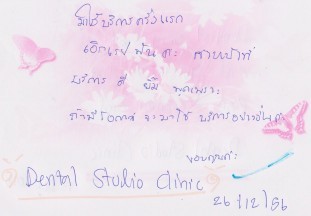 มาใช้บริการครั้งแรก
เอ็กเรย์ฟัน ค่ะ
บริการ ดี ยิ้ม พูดเพราะ
ถ้ามีโอกาส จะมาใช้ บริการอย่างอื่นค่ะ
ขอบคุณค่ะ
Dental Studio Clinic
26/12/56